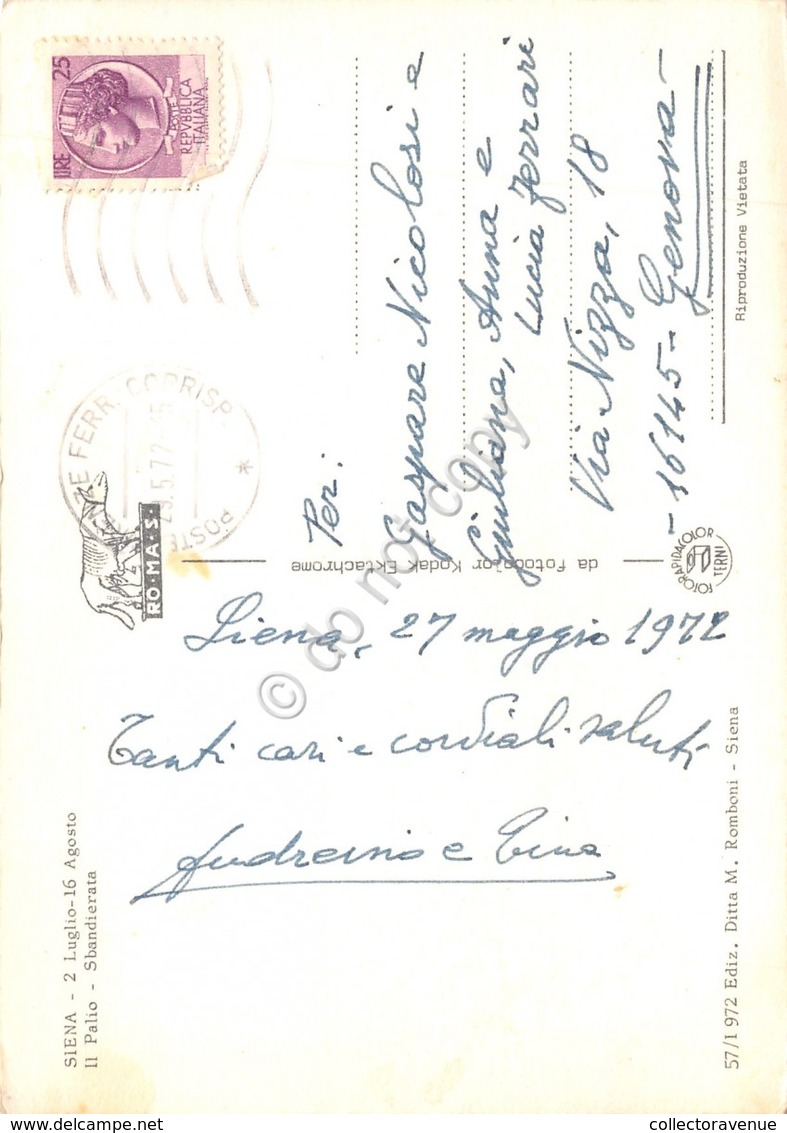 SIENA - 2 Luglio-16 Agosto
Il Palio - Sbandierata
Siena, 27 maggio 1972
Tanti cari e cordiali saluti
Andreino e Tina
57/I 972 Ediz. Ditta M. Romboni - Siena
RO·MA·S·
da Fotocolor Kodak Ektachrome
FOTORAPIDACOLOR
TERNI
LIRE 25
POSTE
REPVBBLICA
ITALIANA
FERR. CORRISP.
POSTE
Per:
Gaspare Nicolosi e
Giuliana, Anna e
Lucia Ferrari
Via Nizza, 18
-16145- Genova-
Riproduzione Vietata
© do not copy
www.delcampe.net
collectoravenue